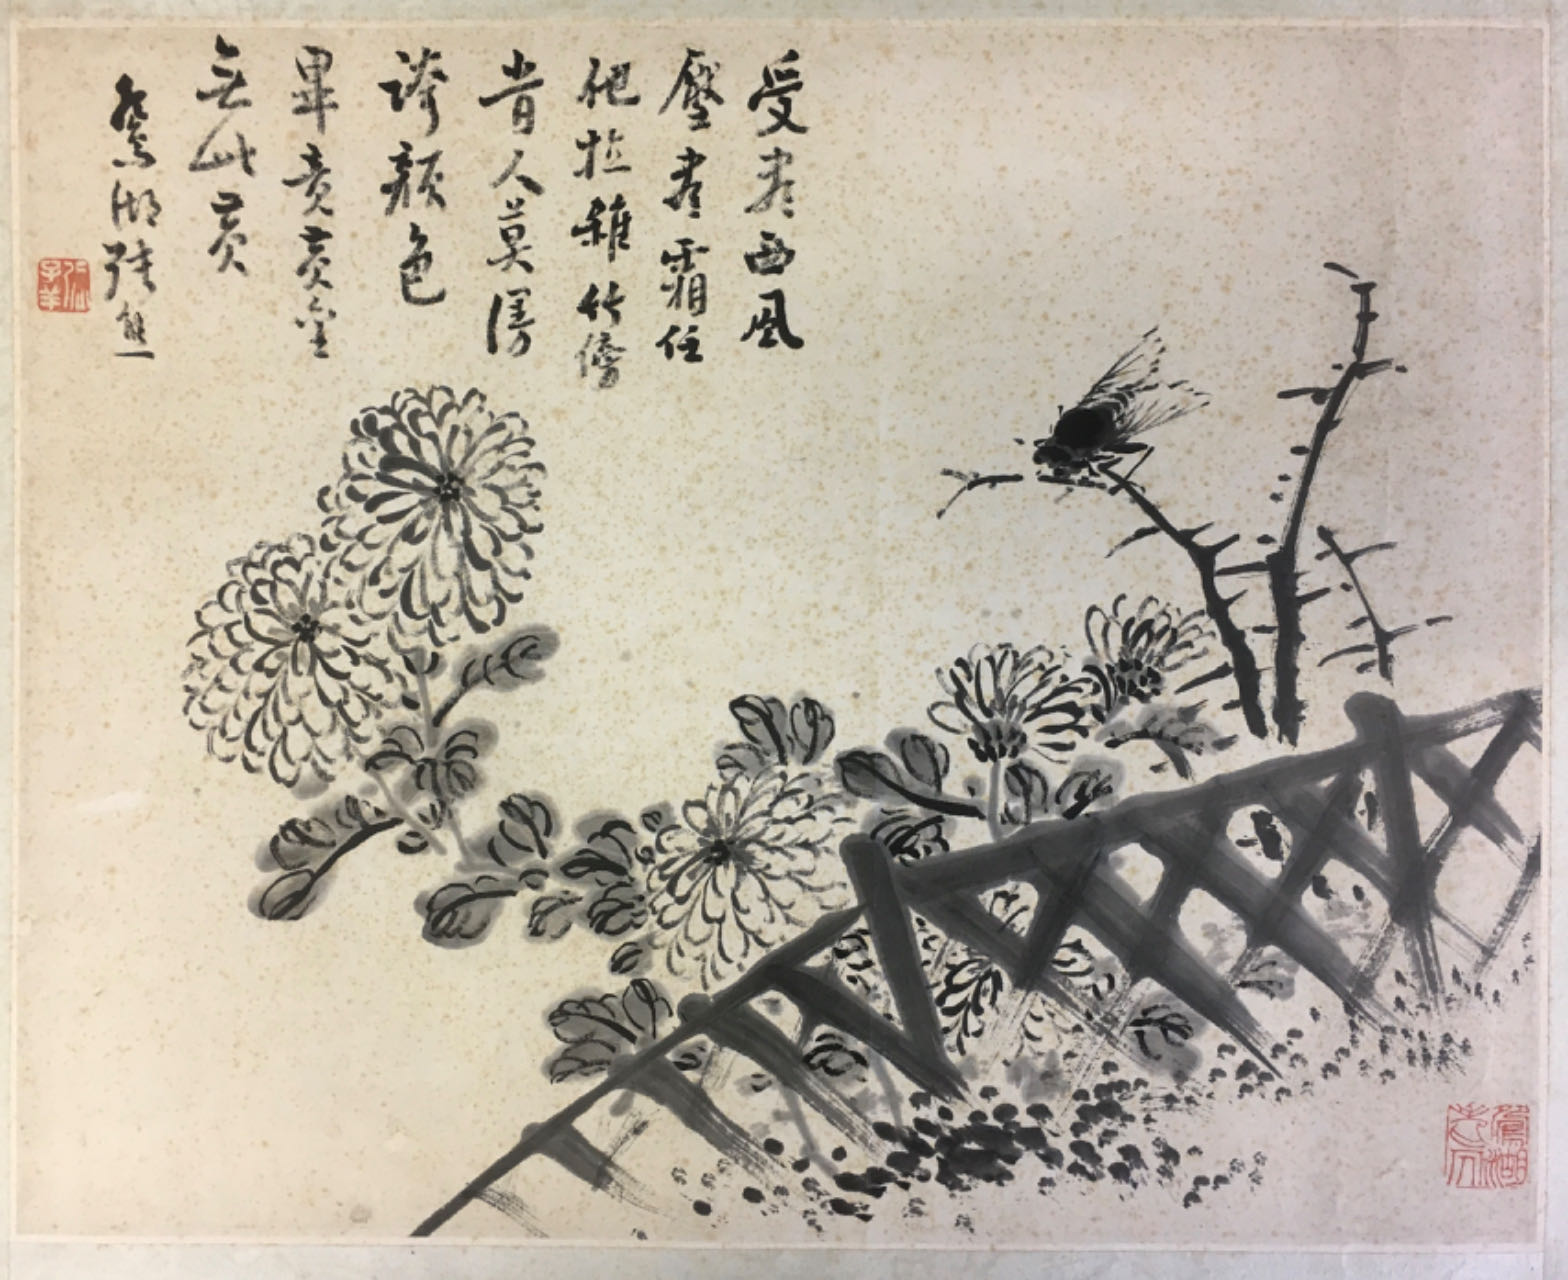 受盡西風
壓盡霜任
他拉雜竹傍
旹人莫漫
誇顏色
畢竟黃金
無此黃
鴛湖張熊